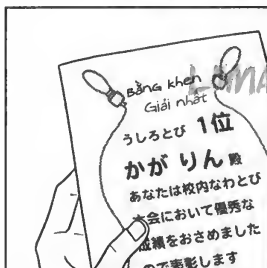 Bằng khen
Giải nhất
うしろとび 1位
かがりん 殿
あなたは校内なわとび
大会において優秀な
成績をおさめました
ので表彰します